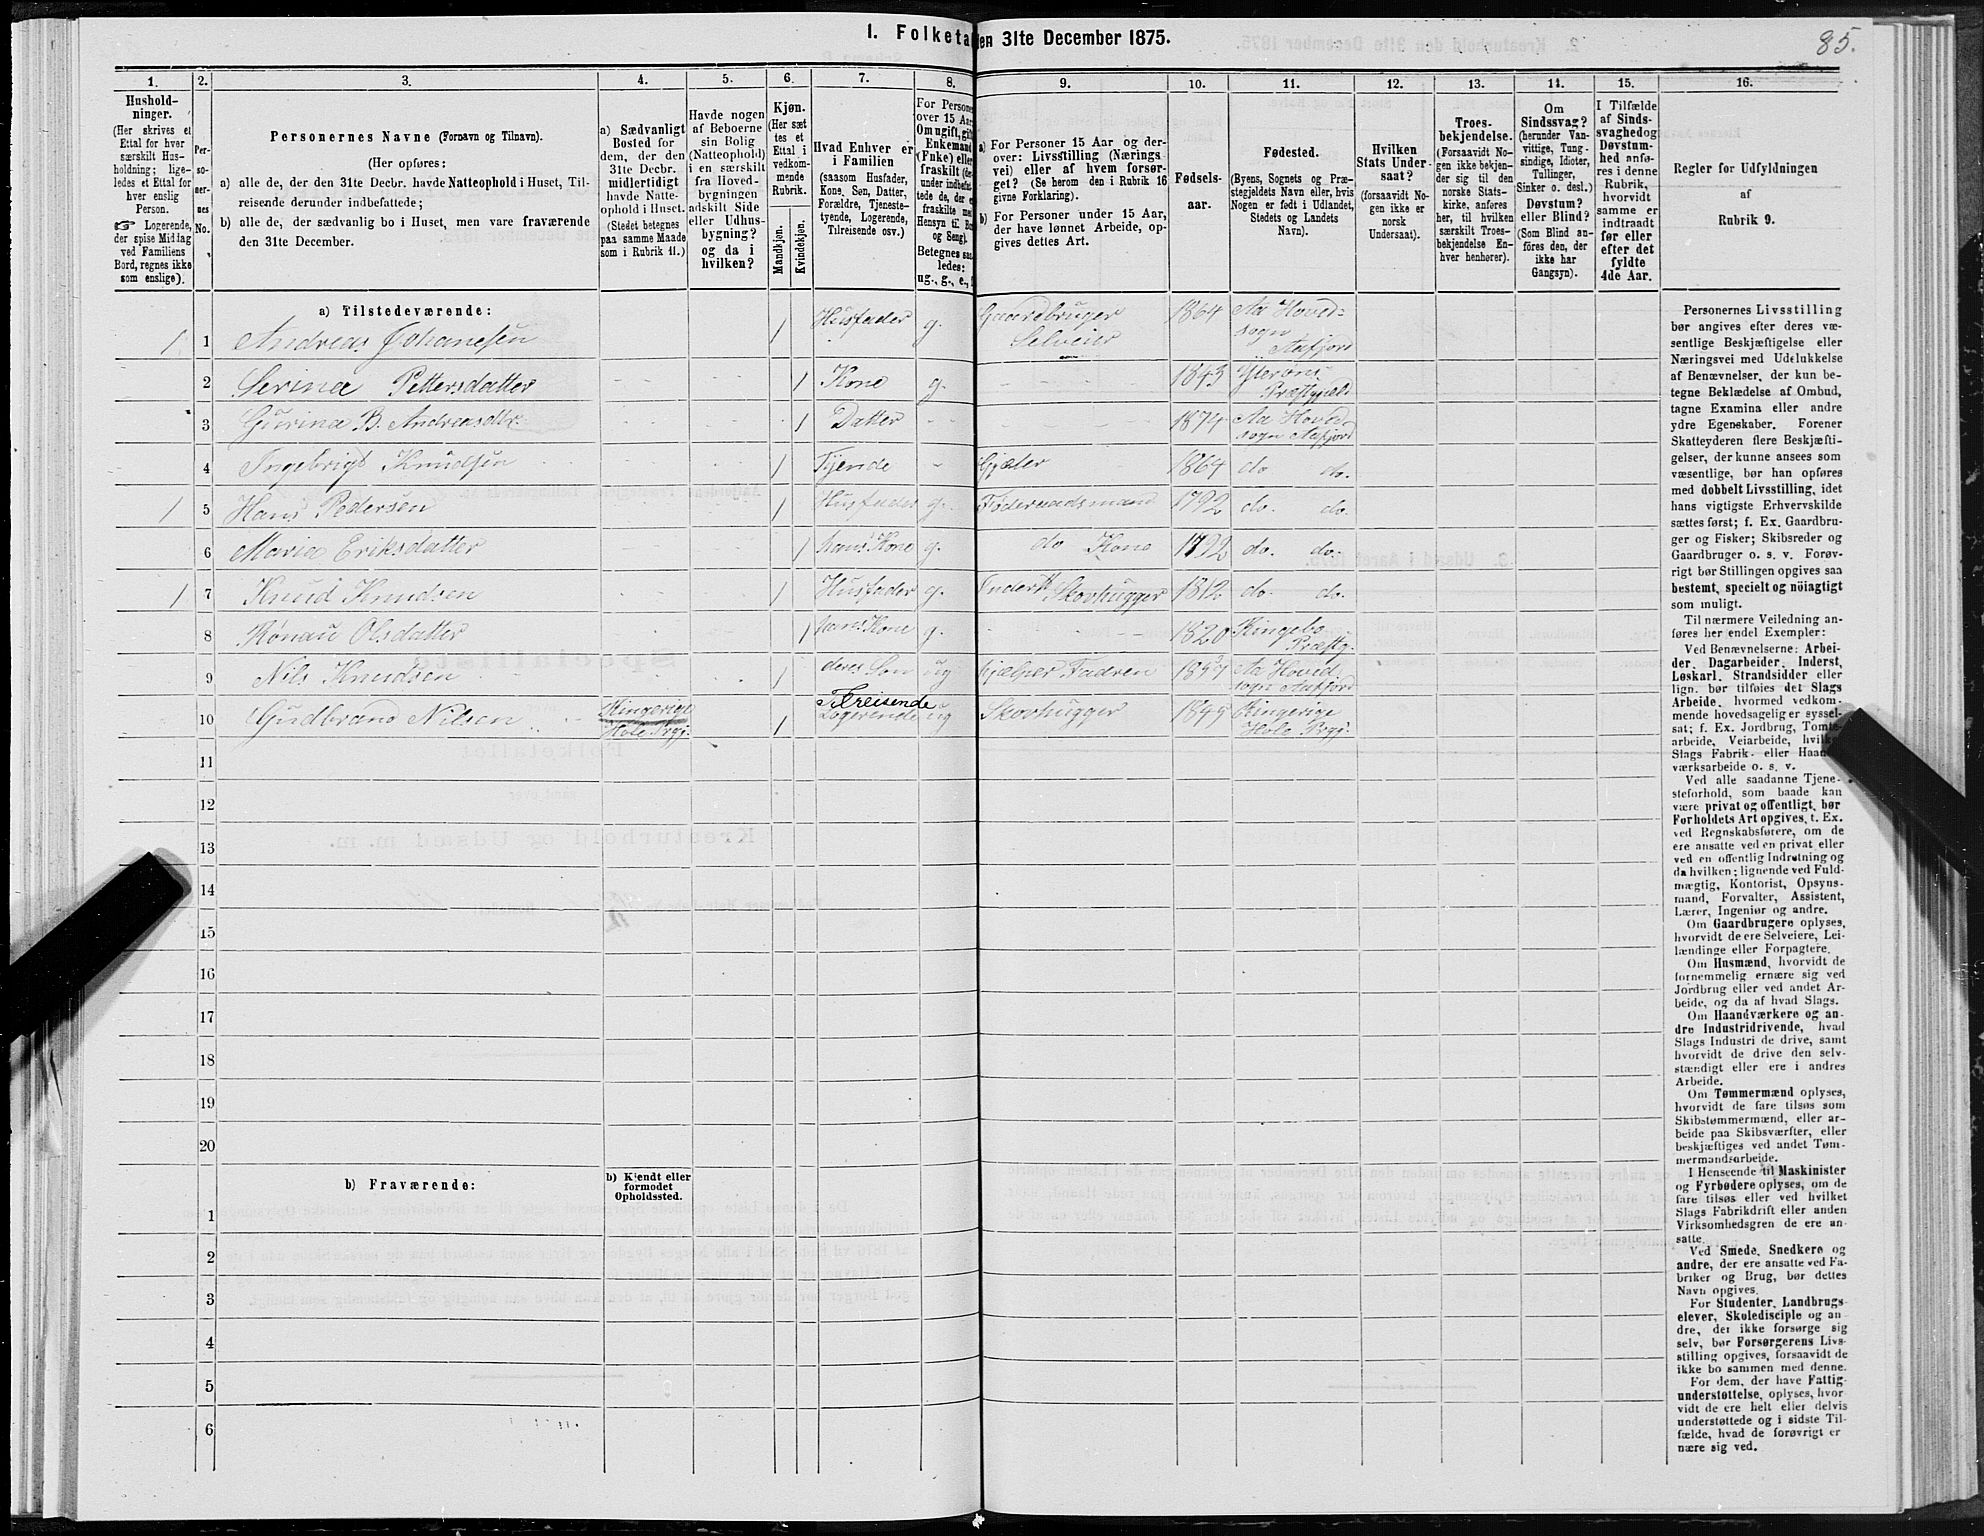 1. Folketa
den 31te December 1875.
85.
1.
2.
3.
4.
5.
6.
7.
8.
9.
10.
11.
12.
13.
14.
15.
16.
Hushold-
ninger.
(Her skrives et
Ettal for hver
særskilt Hus-
holdning; lige-
ledes et Ettal for
hver enslig
Person.
☞ Logerende,
der spise Middag
ved Familiens
Bord, regnes ikke
som enslige).
Per-
so-
ner-
nes
No.
Personernes Navne (Fornavn og Tilnavn).
(Her opføres:
a) alle de, der den 31te Decbr. havde Natteophold i Huset, Til-
reisende derunder indbefattede;
b) alle de, der sædvanlig bo i Huset, men vare fraværende
den 31te December.
a) Sædvanligt
Bosted for
dem, der den
31te Decbr.
midlertidigt
havde Natte-
ophold i Huset.
(Stedet betegnes
paa samme Maade
som i Rubrik 11.)
Havde nogen
af Beboerne
sin Bolig
(Natteophold)
i en særskilt
fra Hoved-
bygningen
adskilt Side
eller Udhus-
bygning?
og da i
hvilken?
Kjøn.
(Her sæt
tes et
Ettal i
vedkom-
mende
Rubrik.
Mandkjøn.
Kvindekjøn.
Hvad Enhver er
i Familien
(saasom Husfader,
Kone, Søn, Datter,
Forældre, Tjeneste-
tyende, Logerende,
Tilreisende osv.)
For Persone
over 15 Aar
Om ugift, gift
Enkemand
(Enke) eller
fraskilt (der
under indbefat-
tede de, der e
fraskilte me
Hensyn til Bo
og Seng).
Betegnes saa
ledes:
ug., g., e., f.
a) For Personer 15 Aar og der-
over: Livsstilling (Nærings-
vei) eller af hvem forsør-
get? (Se herom den i Rubrik 16
givne Forklaring).
b) For Personer under 15 Aar,
der have lønnet Arbeide, op-
gives dettes Art.
Fødsels-
aar.
Fødested.
(Byens, Sognets og Præ-
stegjeldets Navn eller, hvis
Nogen er født i Udlandet,
Stedets og Landets
Navn).
Hvilken
Stats Under-
saat?
(forsaavidt No-
gen ikke er
norsk
Undersaat).
Troes-
bekjendelse.
(Forsaavidt No-
gen ikke bekjen-
der sig til den
norske Stats-
kirke, anføres
her, til hvilken
særskilt Troes-
bekjendelse En-
hver henhører).
Om
Sindssvag?
(herunder Van-
vittige, Tung-
sindige, Idioter,
Tullinger,
Sinker o. desl.)
Døvstum?
eller Blind?
(Som Blind an-
føres den, der
ikke har
Gangsyn).
I Tilfælde
af Sinds-
svaghed og
Døvstum-
hed anfø-
res i denne
Rubrik,
hvorvidt
samme er
indtraadt
før eller
efter det
fyldte
4de Aar.
Regler for Udfyldningen
af
Rubrik 9.
a) Tilstedeværende:
1 1 Andreas Johanesen 1 Husfader g. Gaardbruger Selveier 1864 Aa Hoved= sogn Aafjord
2 Serina Pettersdatter 1 Kone g. 1843 Yterøns Præstgjæld
3 Gurina B. Andreasdtr. 1 Datter 1874 Aa Hoved sogn Aafjord
4 Ingebrigt Knudsen 1 Tjende Gjæter 1864 do do.
1 5 Hans Pedersen 1 Husfader g. Føderaadsmand 1792 do. do.
6 Maria Eriksdatter 1 hans Kone g. do Kone 1792 do. do.
1 7 Knud Knudsen 1 Husfader g. Inderst Skovhugger 1812 do. do.
8 Rønau Olsdatter 1 hans Kone g. 1820 Ringebo Præstg.
9 Nils Knudsen 1 deres Søn ug hjælper Fadren Aa Hoved sogn Aafjord
10 Gudbrand Nilsen Ringerige Hole Prgj. 1 Tilreisende Logerende ug Skovhugger 1845 Ringerige Hole Prgj.
11
12
13
14
15
16
17
18
19
20
b) Fraværende:
b) Kjendt eller
formodet
Opholdssted.
1
2
3
4
5
6
Personernes Livsstilling
bør angives efter deres væ-
sentlige Beskjæftigelse eller
Næringsvei med Udelukkelse
af Benævnelser, der kun be-
tegne Beklædelse af Ombud,
tagne Examina eller andre
ydre Egenskaber. Forener
Skatteyderen flere Beskjæfti-
gelser, der kunne ansees som
væsentlige, bør han opføres
med dobbelt Livsstilling, idet
hans vigtigste Erhvervskilde
sættes først; f. Ex. Gaardbru-
ger og Fisker; Skibsreder og
Gaardbruger o. s. v. Forøv-
rigt bør Stillingen opgives saa
bestemt, specielt og nöiagtigt
som muligt.
Til nærmere Veiledning an-
føres her endel Exempler:
Ved Benævnelserne: Arbei-
der, Dagarbeider, Inderst,
Løskarl, Strandsidder eller
lign. bør tilføies det Slags
Arbeide, hvormed vedkom-
mende hovedsagelig er syssel-
sat; f. Ex. Jordbrug, Tomte-
arbeide, Veiarbeide, hvilke
Slags Fabrik- eller Haand-
værksarbeide o. s. v.
Ved alle saadanne Tjene-
steforhold, som baade kan
være privat og offentligt, bør
Forholdets Art opgives, t. Ex.
ved Regnskabsførere, om de
ere ansatte ved en privat eller
ved en offentlig Indretning og
da hvilken; lignende ved Fuld-
mægtig, Kontorist, Opsyns-
mand, Forvalter, Assistent,
Lærer, Ingeniør og andre.
Om Gaardbrugere oplyses,
hvorvidt de ere Selveiere, Lei-
lændinge eller Forpagtere.
Om Husmænd, hvorvidt de
fornemmelig ernære sig ved
Jordbrug eller ved andet Ar-
beide, og da af hvad Slags.
Om Haandværkere og an-
dre Industridrivende, hvad
Slags Industri de drive, samt
hvorvidt de drive den selv-
stændigt eller ere i andres
Arbeide.
Om Tømmermænd oplyses,
hvorvidt de fare tilsøs som
Skibstømmermænd, eller ar-
beide paa Skibsværfter, eller
beskjæftiges ved andet Tøm-
mermandsarbeide.
I Henseende til Maskinister
og Fyrbødere oplyses, om de
fare tilsøs eller ved hvilket
Slags Fabrikdrift eller anden
Virksomhedsgren de ere an-
satte.
Ved Smede, Snedkere og
andre, der ere ansatte ved Fa-
briker og Brug, bør dettes
Navn opgives.
For Studenter, Landbrugs-
elever, Skoledisciple og an-
dre, der ikke forsørge sig
selv, bør Forsørgerens Livs-
stilling opgives, forsaavidt de
ikke bo sammen med denne.
For dem, der have Fattig-
understøttelse, oplyses, hvor-
vidt de ere helt eller delvis
understøttede og i sidste Til-
fælde, hvad de forøvrigt er-
nære sig ved.